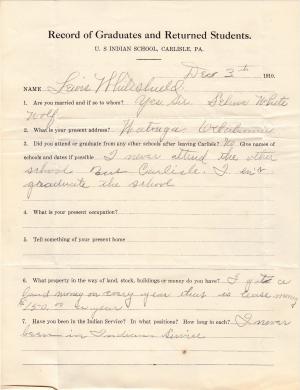 Record of Graduates and Returned Students.
U. S INDIAN SCHOOL, CARLISLE, PA.
Dec 3th 1910.
NAME Lewis Whiteshield
1. Are you married and if so to whom? Yes Sir. White
Wolf
2. What is your present address? Watonga Oklahoma
3. Did you attend or graduate from any other schools after leaving Carlisle? No Give names of
schools and dates if possible I never attend the other
school But Carlisle. I isn't
graduate the school
4. What is your present occupation?
5. Tell something of your present home
6. What property in the way of land, stock, buildings or money do you have? I gets a
land money on every year thus is lease money
$150.00 a year
7. Have you been in the Indian Service? In what positions? How long in each? I never
been in Indian Service